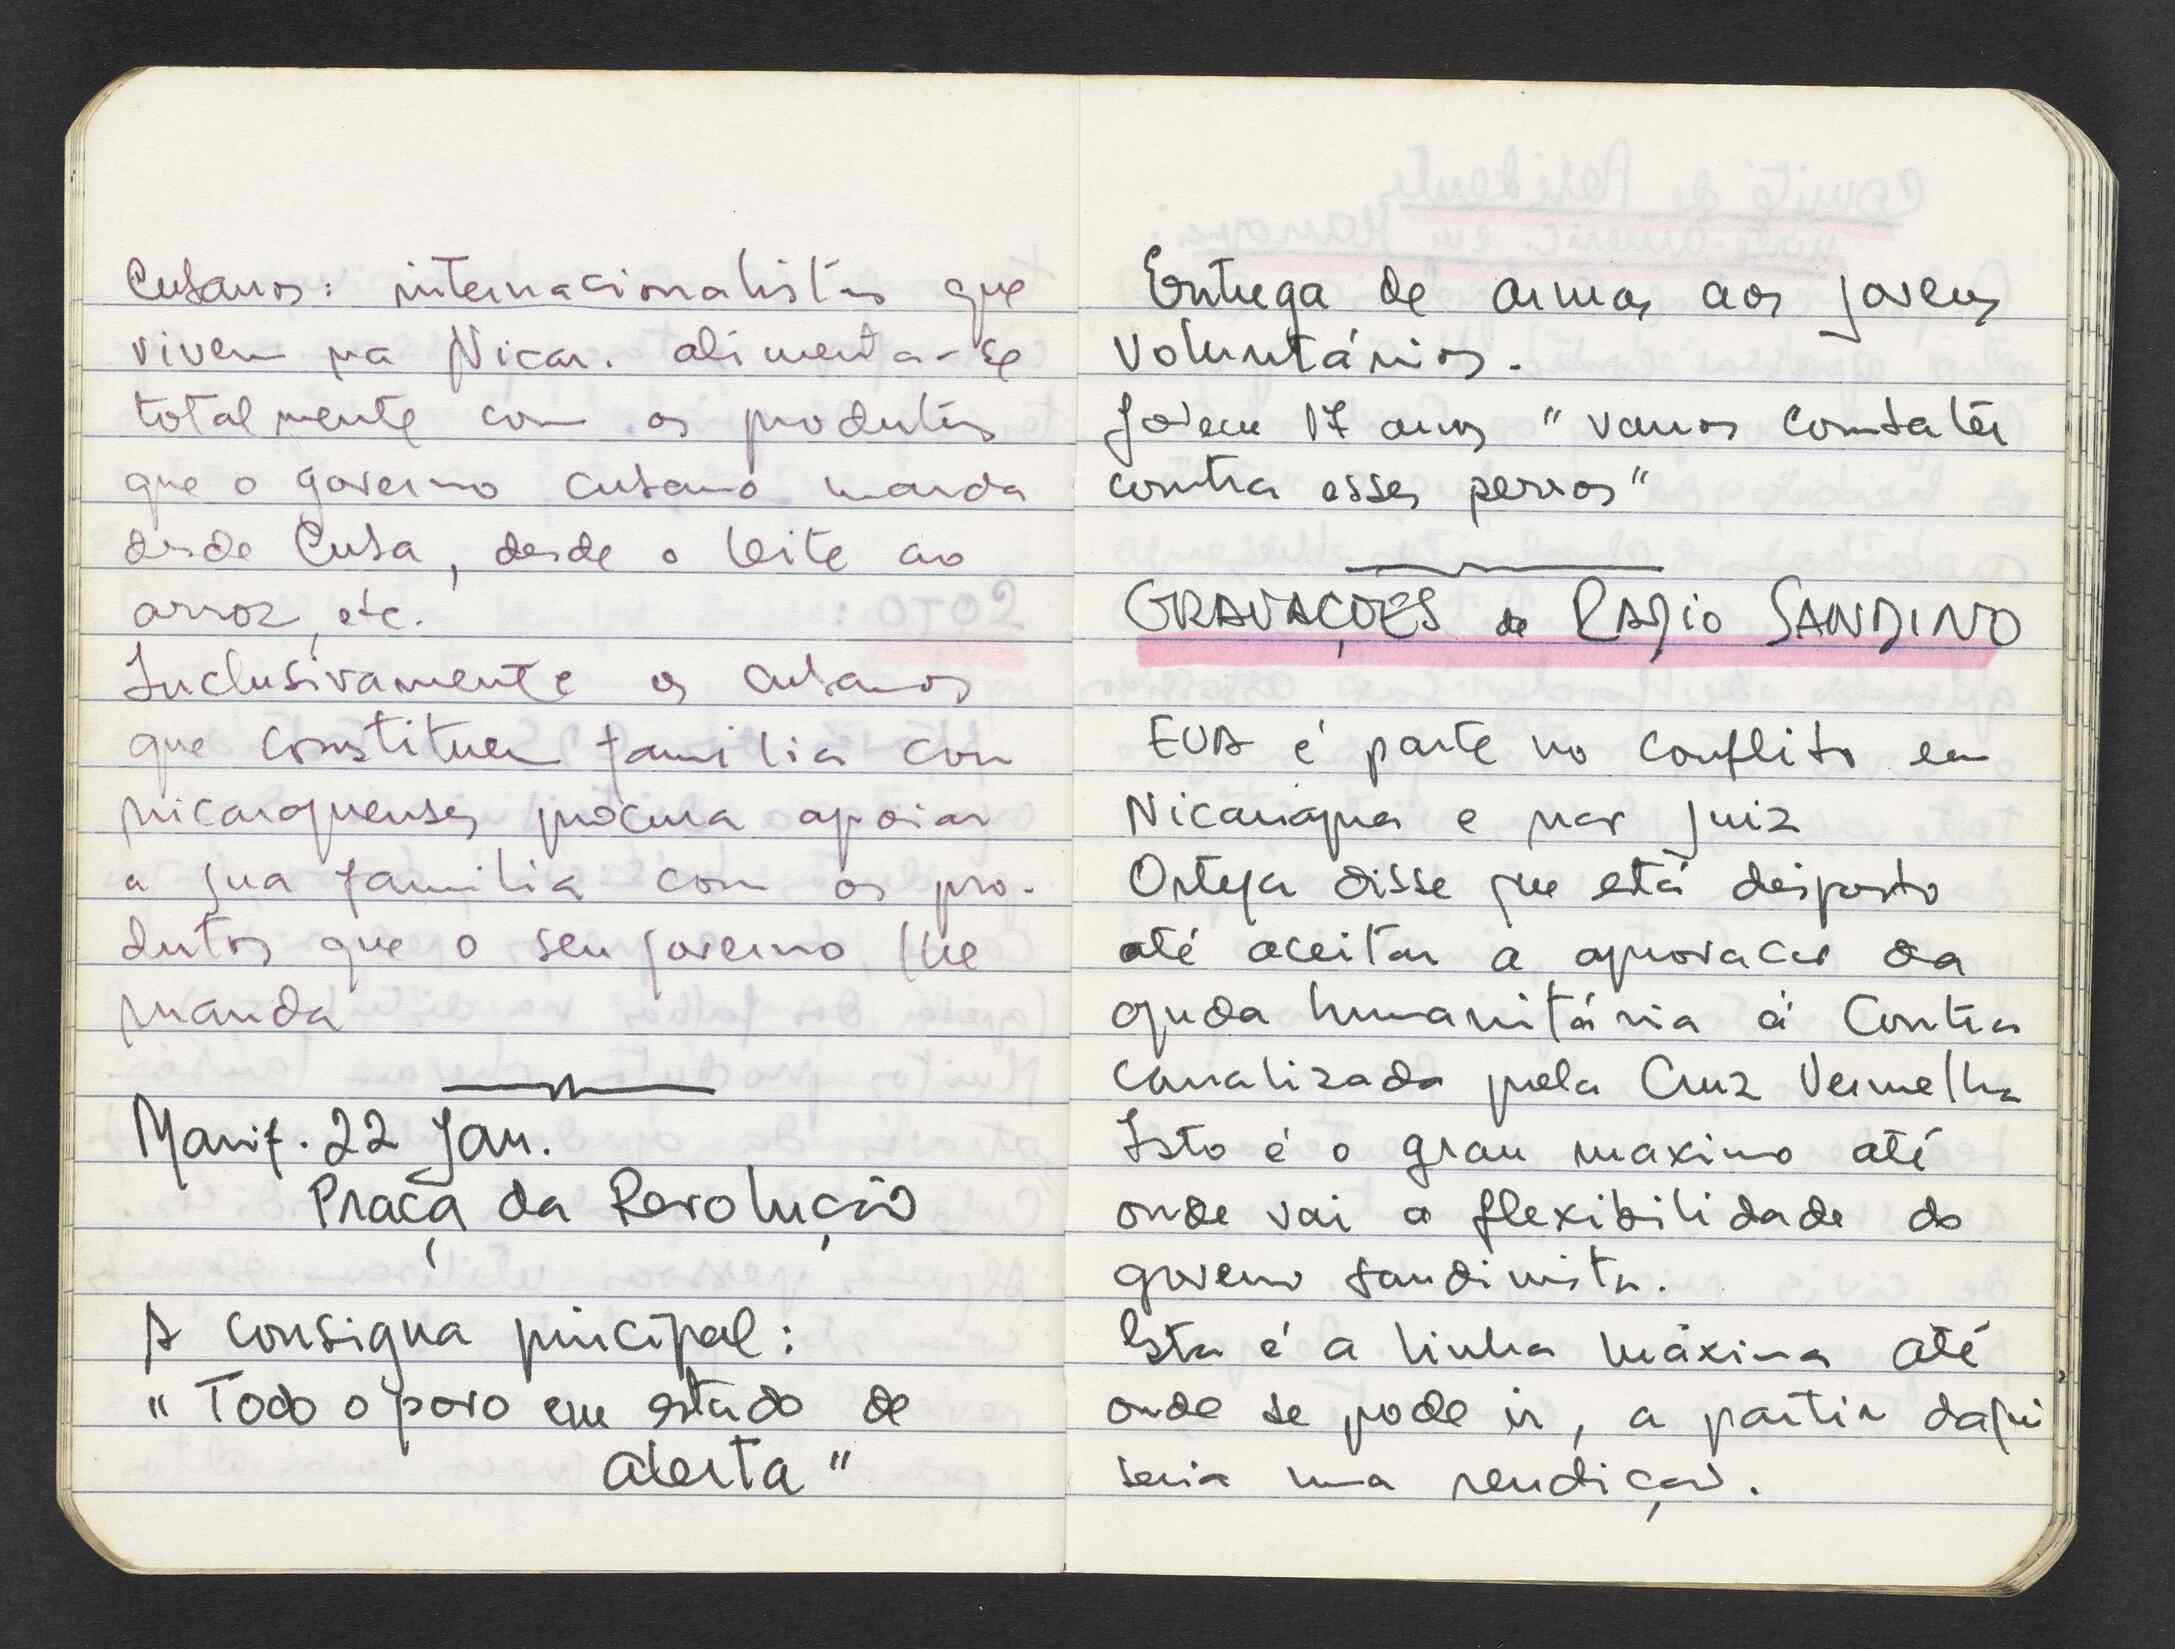 Cubanos: internacionalistas que
vivem na Nicar. alimenta-se
totalmente com os produtos
que o governo cubano manda
desde Cuba, desde o leite ao
arroz, etc.
Inclusivamente os cubanos
que constituem familia con
nicaraguenses procura apoiar
a sua familia com os pro-
dutos que o seu governo lhe
manda
Manif. 22 Jan.
Praça da Revolução
A consigna principal:
"Todo o povo em estado de
alerta"
Entrega de armas aos jovens
Voluntários.
Jovem 17 anos "vamos combater
contra esses perros"
GRAVAÇOES de RADIO SANDINO
EUA é parte no conflito em
Nicaragua e nao juiz
Ortega disse que está disposto
até aceitar a aprovacao da
ajuda humanitária á Contra
canalizada pela Cruz Vermelha
Isto é o grau maximo até
onde vai a flexibilidade do
governo sandinista.
Esta é a linha máxima até
onde se pode ir, a partir daqui
seria uma rendiçao.